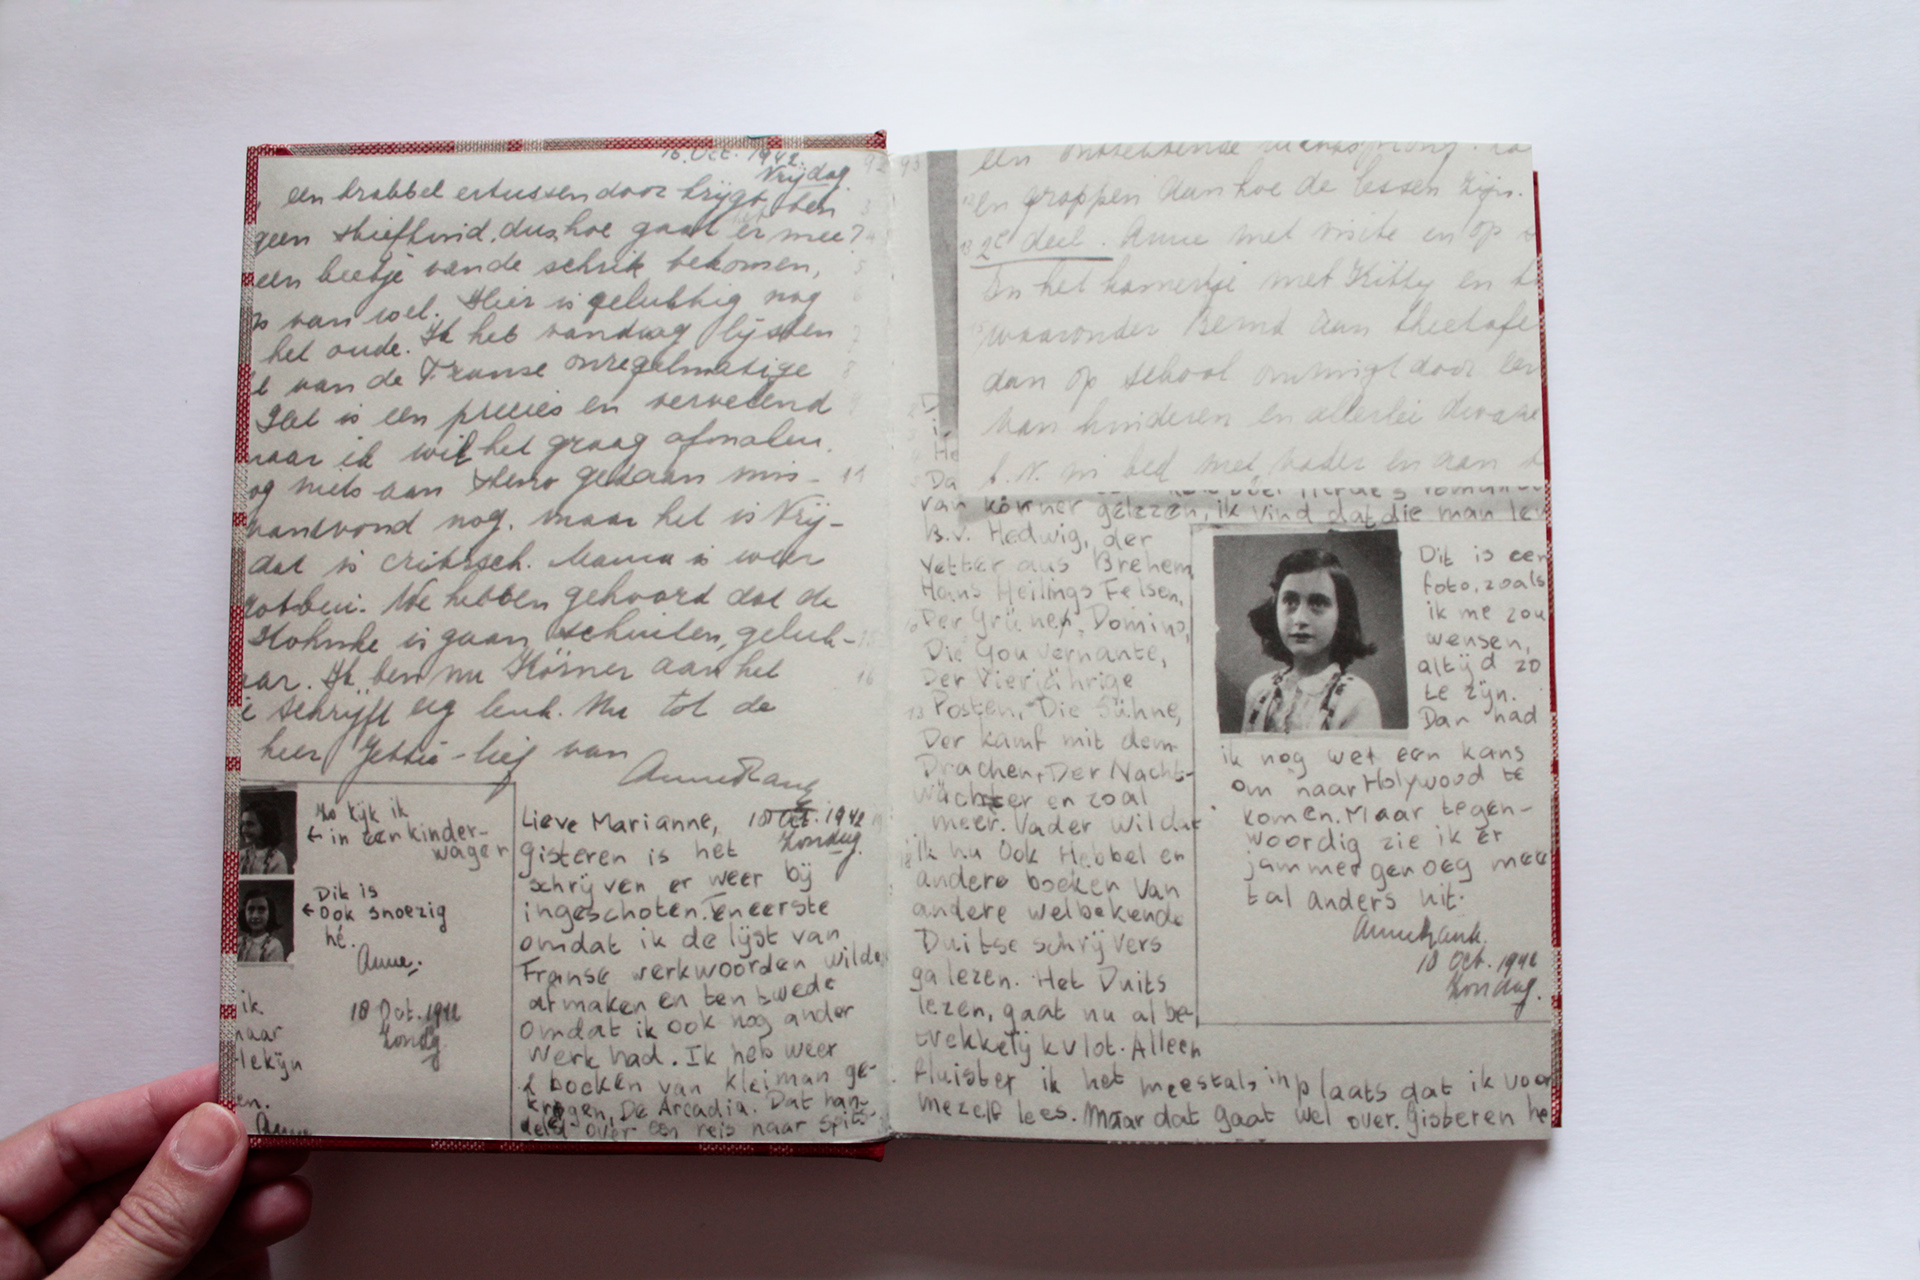 16. Oct. 1942.
Vrijdag.
een krabbel ertussendoor krijgt, ben
geen stiefkind, dus hoe gaat er mee?
een beetje van de schrik bekomen,
van wel. Hier is gelukkig nog
het oude. Ik heb vandaag lijsten
van de Franse onregelmatige
Het is een precies en vervelend
maar ik wil het graag afmaken.
nog niets aan Steno gedaan mis-
vanavond nog. maar het is Vrij-
dat is critisch. Mama is weer
We hebben gehoord dat de
Kohnke is gaan schuilen, geluk-
Ik ben nu Körner aan het
schrijft erg leuk. Nu tot de
keer Jettie-lief van
Anne Frank
Zo kijk ik
in een kinder-
wagen
Dit is
ook snoezig
hé.
Anne.
18 Oct. 1942
Zondag
ik
naar
en.
Anne
Lieve Marianne, 18 Oct. 1942
Zondag.
Gisteren is het
schrijven er weer bij
ingeschoten. Ten eerste
omdat ik de lijst van
Franse werkwoorden wilde
afmaken en ten twede
omdat ik ook nog ander
werk had. Ik heb weer
2 boeken van Kleiman ge-
kregen, De Arcadia. Dat han-
deld over een reis naar Spits-
92 93
en grappen aan hoe de lessen zijn.
2e deel. Anne met visite en op
In het kamertje met Kitty en
waaronder Bernd aan theetafel
dan op school omringt door een
van kinderen en allerlei
in bed met vader en aan
He
Da
van Körner gelezen, ik vind dat die man
B.v. Hedwig, der
Vetter aus Brehem,
Hans Heilings Felsen,
Der Grüner, Domino,
Die Gouvernante,
Der Vierjährige
Posten, Die Sühne,
Der kamf mit dem
Drachen, Der Nacht-
wächter en zoal
meer. Vader wil dat
ik nu ook Hebbel en
andere boeken van
andere welbekende
Duitse schrijvers
ga lezen. Het Duits
lezen, gaat nu al be-
trekkelijk vlot. Alleen
fluister ik het meestal inplaats dat ik voor
mezelf lees. Maar dat gaat wel over. Gisteren he
Dit is een
foto, zoals
ik me zou
wensen,
altijd zo
te zijn.
Dan had
ik nog wel een kans
om naar Holywood te
komen. Maar tegen-
woordig zie ik er
jammer genoeg mees
tal anders uit.
Anne Frank.
18 Oct. 1942
Zondag.